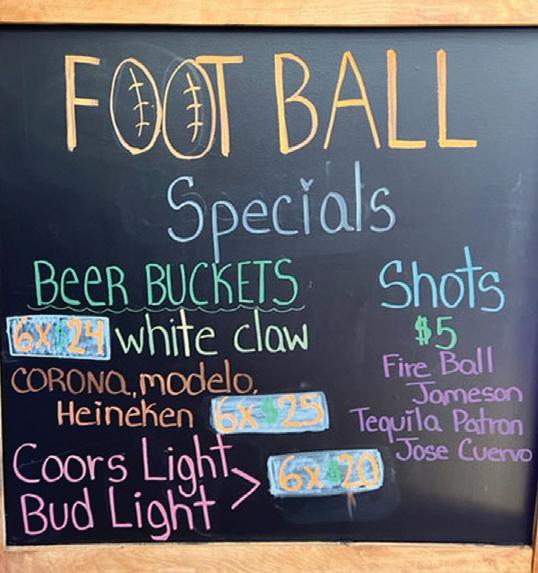 FOOTBALL
Specials
BEER BUCKETS
6x $24 white claw
CORONA, modelo,
Heineken 6x $25
Coors Light
Bud Light > 6x $20
Shots
$5
Fire Ball
Jameson
Tequila Patron
Jose Cuervo